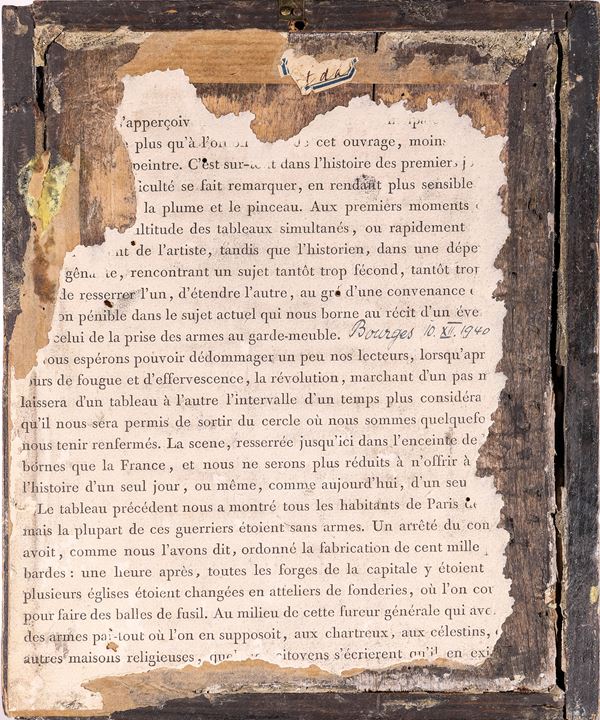 'apperçoiv
plus qu'à l'on cet ouvrage, moins
peintre. C'est sur-tout dans l'histoire des premiers j
iculté se fait remarquer, en rendant plus sensible
la plume et le pinceau. Aux premiers moments
ultitude des tableaux simultanés, ou rapidement
nt de l'artiste, tandis que l'historien, dans une dépe
gênante, rencontrant un sujet tantôt trop fécond, tantôt trop
de resserrer l'un, d'étendre l'autre, au gré d'une convenance
on pénible dans le sujet actuel qui nous borne au récit d'un éve
celui de la prise des armes au garde-meuble. Bourges 10. XII. 1940
ous espérons pouvoir dédommager un peu nos lecteurs, lorsqu'apr
ours de fougue et d'effervescence, la révolution, marchant d'un pas m
laissera d'un tableau à l'autre l'intervalle d'un temps plus considéra
qu'il nous sera permis de sortir du cercle où nous sommes quelquefo
nous tenir renfermés. La scene, resserrée jusqu'ici dans l'enceinte de
bornes que la France, et nous ne serons plus réduits à n'offrir à
l'histoire d'un seul jour, ou même, comme aujourd'hui, d'un seu
Le tableau précédent nous a montré tous les habitants de Paris
mais la plupart de ces guerriers étoient sans armes. Un arrêté du com
avoit, comme nous l'avons dit, ordonné la fabrication de cent mille
bardes : une heure après, toutes les forges de la capitale y étoient
plusieurs églises étoient changées en atteliers de fonderies, où l'on cou
pour faire des balles de fusil. Au milieu de cette fureur générale qui avo
des armes par-tout où l'on en supposoit, aux chartreux, aux célestins,
autres maisons religieuses, quel citoyens s'écrierent qu'il en exi